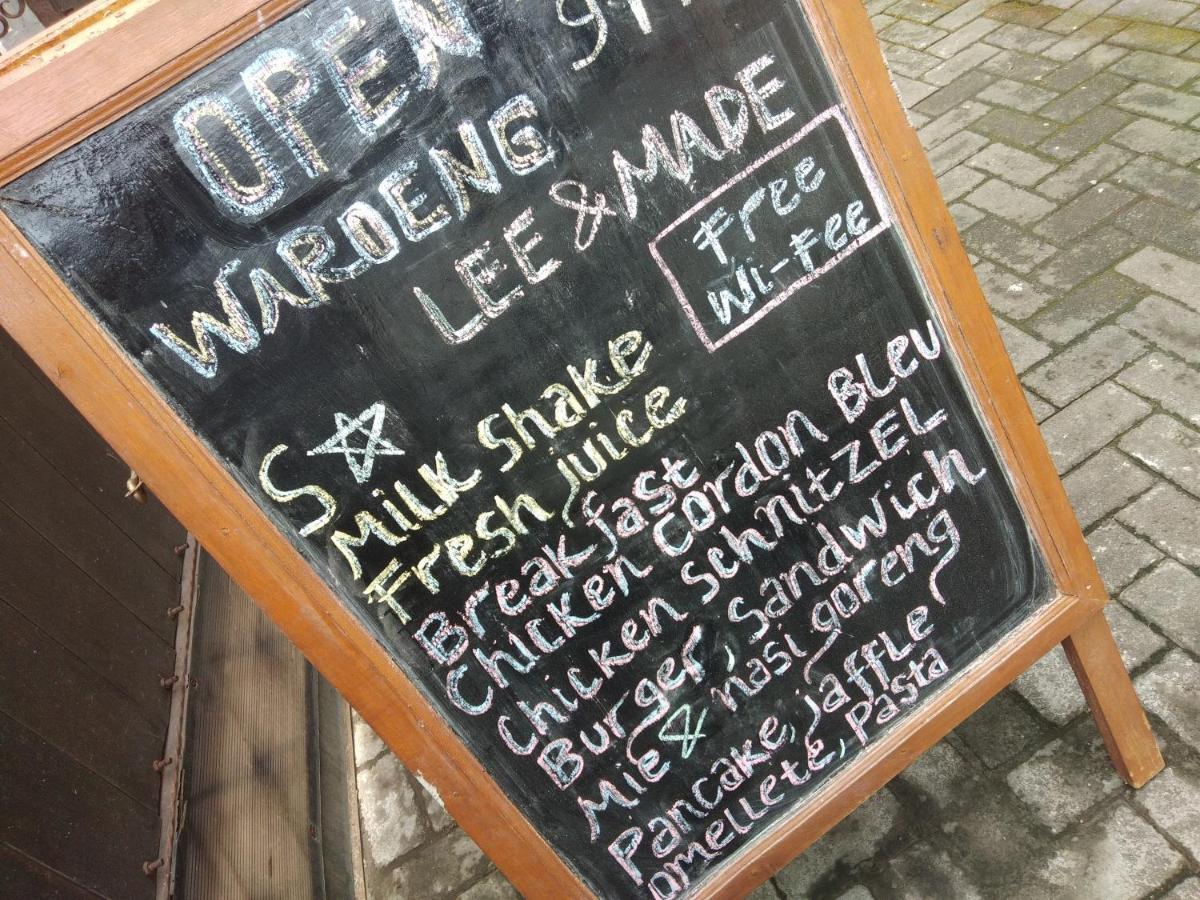 OPEN
WAROENG
LEE & MADE
Free
Wi-Fee
S
MiLK Shake
Fresh juice
Breakfast
Chicken Cordon BLeu
Chicken SchnitZEL
Burger, Sandwich
Mie & nasi goreng
Pancake, jaffLe
omelLete, pasta